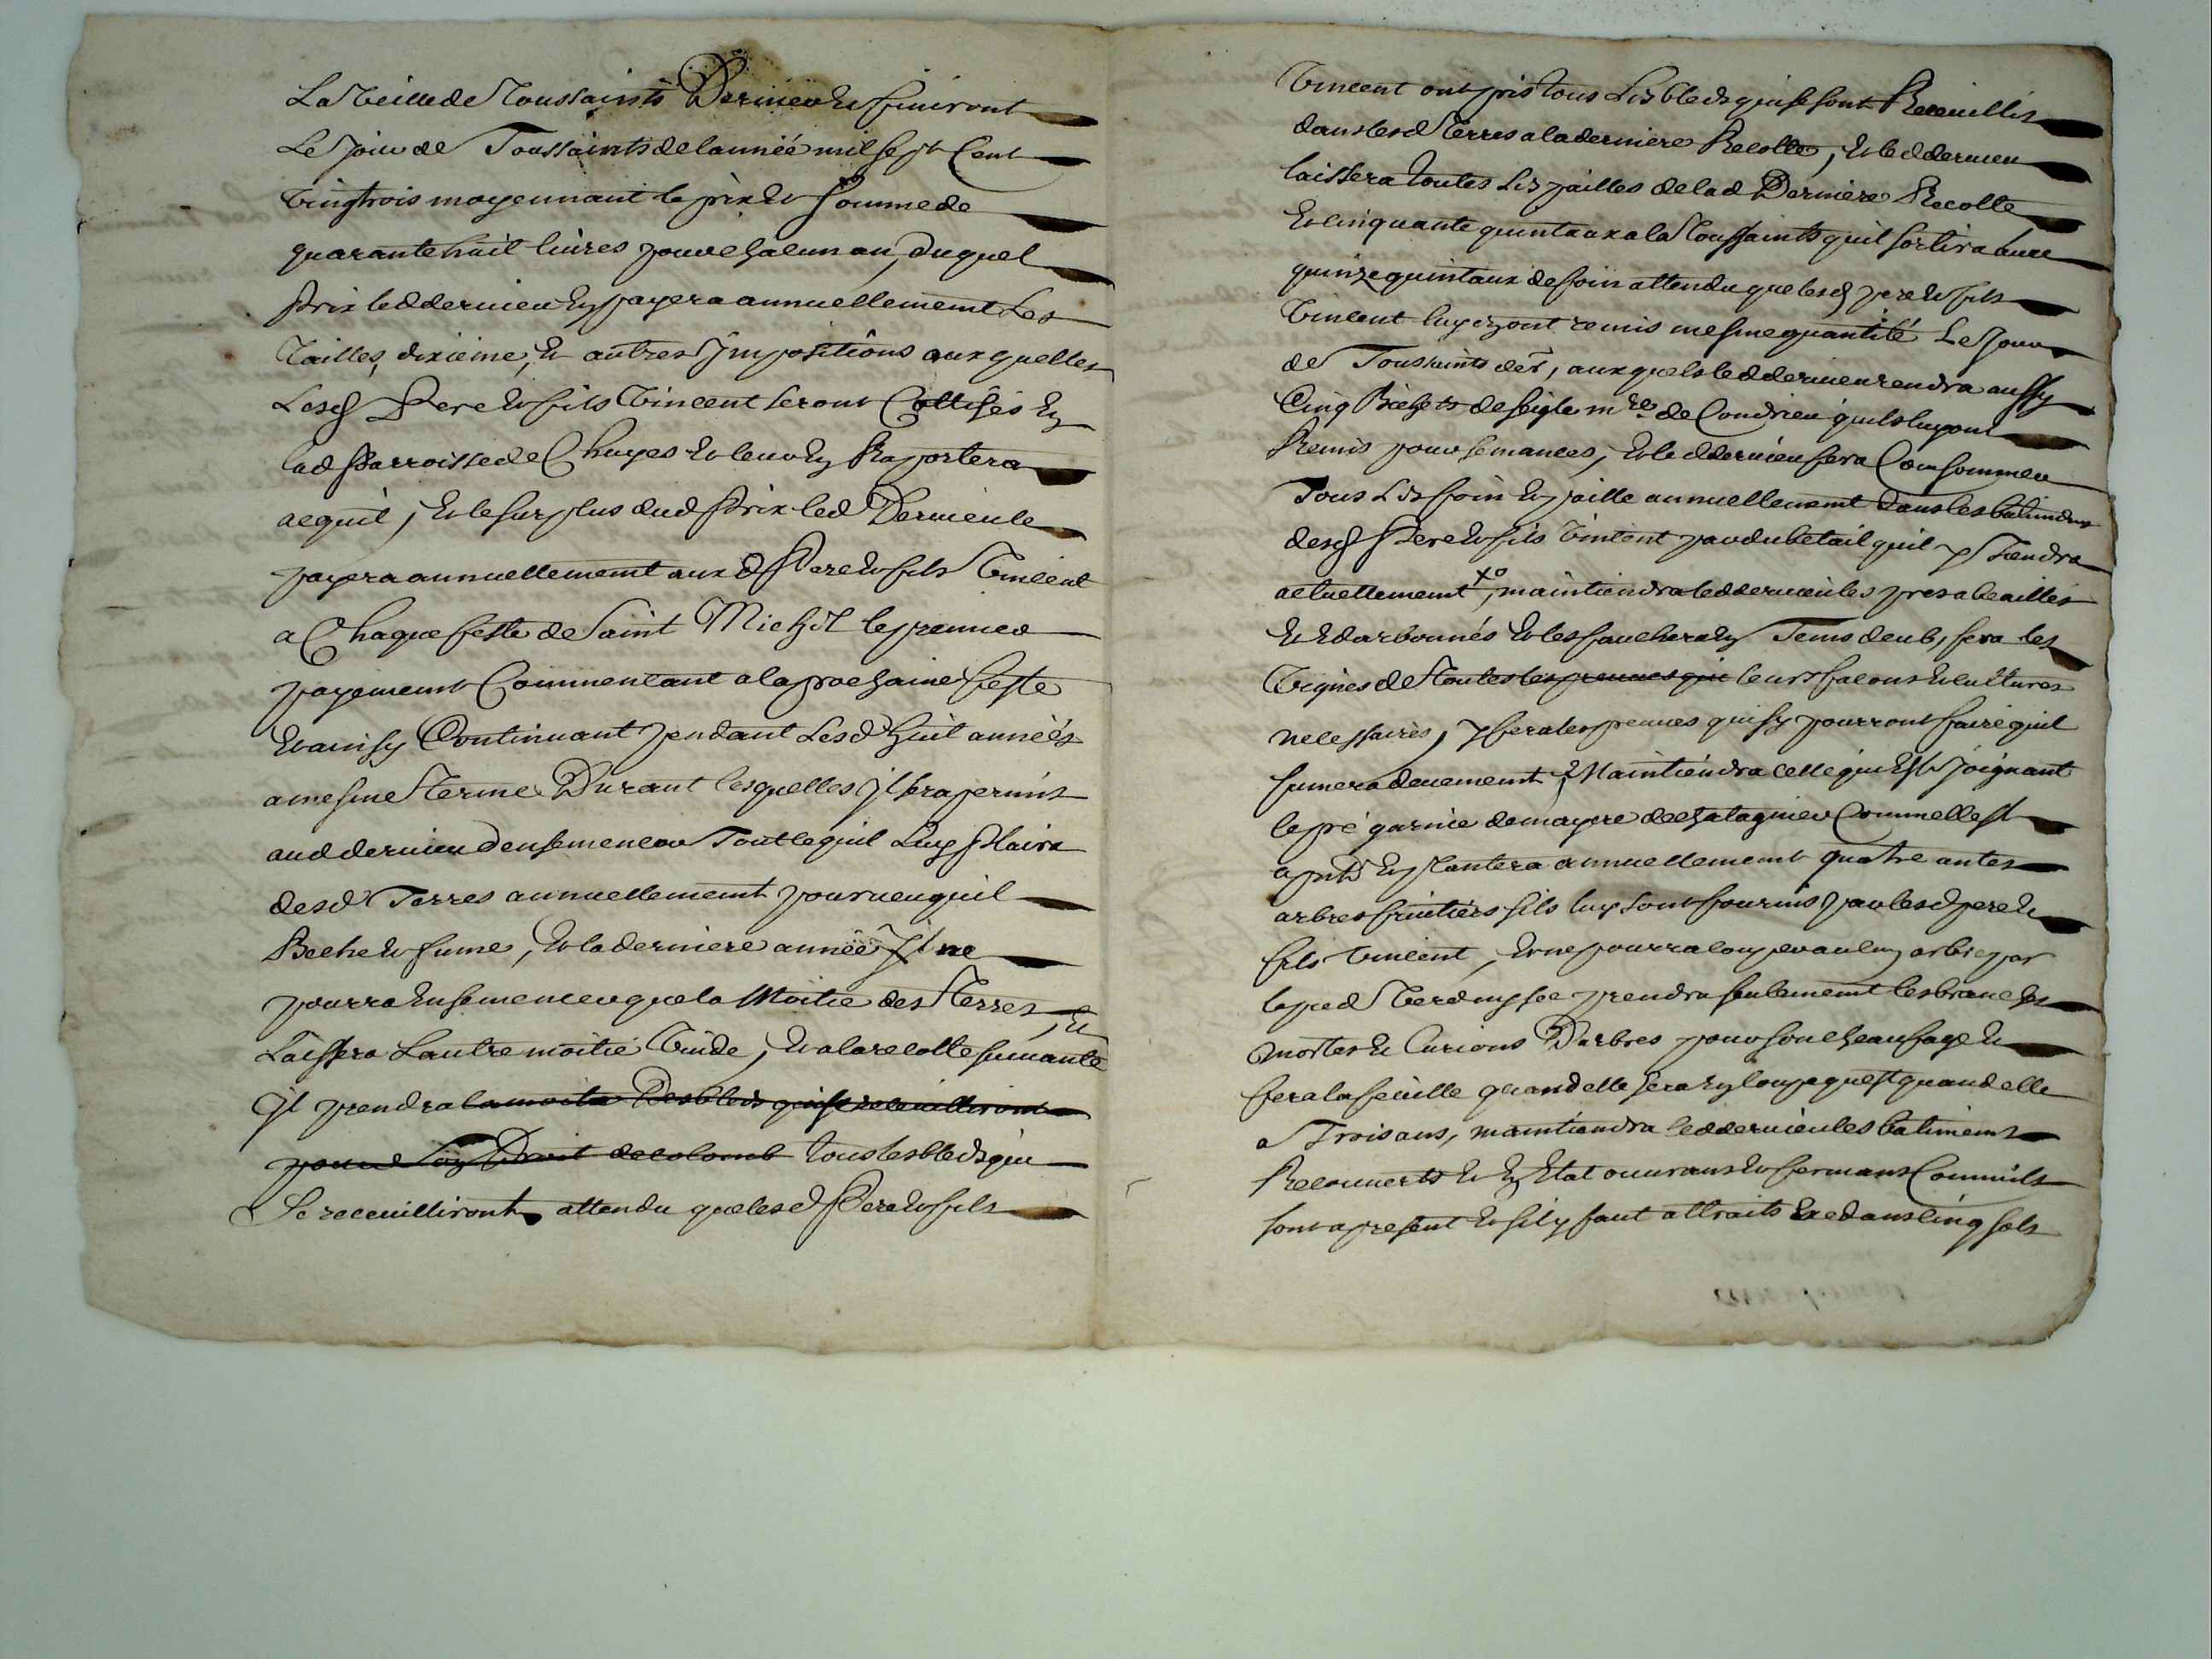 La veille de Toussaints Dernier et finiront
Le jour de Toussaints de lanneé mil sept Cent
vingtrois moyennant le prix et somme de
quarante huit livres pour chacun an, duquel
Prix led dernieu en payera annuellement Les
Tailles, dixieme, et autres Jmpositions auxquelles
Lesd Pere et fils Vincent seront Cottisés En
lad Parroisse de Chuyes et leur En Raportera
acquit, et le surplus dud Prix led Dernieu le
payera annuellement aux d Pere et fils Vincent
a Chaque feste de Saint Michel le premier
payement Commencant a la prochaine feste
et ainsy Continuant pendant Lesd huit anneés
a mesme Terme Durant lesquelles Jl sera permis
aud dernieu densemencer Tout le quil Luy Plaira
desd Terres annuellement pourveu quil
Beche et fume, et la derniere anneé Jl ne
pourra Ensemencer que la Moitie des Terres, et
Laissera Lautre moitié Vuide, et a la recolte suivante
Jl prendra la moitie Des bleds qui se receuilliront
pour son Droit de colomb tous les bleds qui
Se receuilliront attendu que lesd Pere et fils
Vincent ont pris tous Les bleds qui se sont Receuillis
dans lesd Terres a la derniere Recolte, et led dernieu
laissera toutes Les pailles de lad Derniere Recolte
et cinquante quintaux a la Toussaints quil sortira avec
quinze quintaux de foin attendu que lesd pere et fils
Vincent luy en ont remis mesme quantité Le Jour
de Toussaints der, auxquels led dernieu rendra aussy
Cinq Bichets de seigle mre de Condrieu quils luy ont
Remis pour semances, et led dernieu fera Consommer
Tous Les foin et paille annuellement dans les batimens
desd Pere et fils Vincent par du betail quil y Tiendra
actuellement xo, maintiendra led dernieu les pres abeaillés
et Edarbonnés et les fauchera En Tems deub, fera les
Vignes de toutes les preuves qui leurs facons et cultures
necessaires, y fera les preuves qui sy pourront faire quil
fumera deuement, Maintiendra celle qui Est Joignant
le pré garnie demayere de chatagnier Comme Elle est
a pnt En plantera annuellement quatre antes
arbres fruitiers sils luy sont fournis par lesd pere et
fils Vincent, et ne pourra couper aucun arbre par
le pied Verd ny sec prendra seulement les branches
mortes et Curions Darbres pour son chaufage et
fera la feuille quand elle sera En coupe quest quand elle
a Trois ans, maintiendra led dernieu les batiments
Recouverts et En Etat ouvrans et fermans Comme ils
sont a present et sil y faut attraits Excedans cinq sols